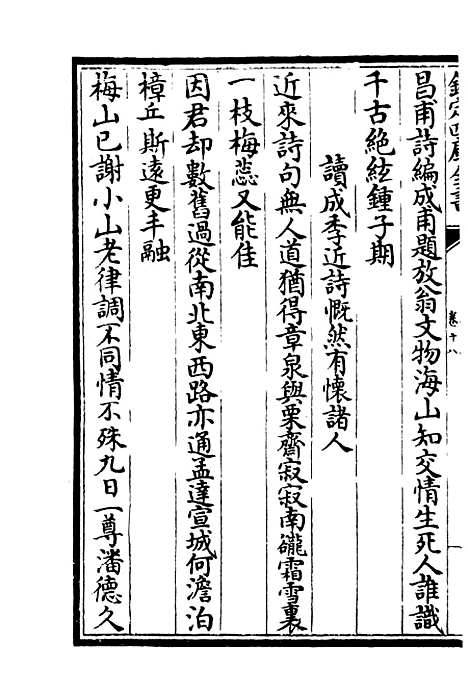 欽定四庫全書
卷十八
昌甫詩編成甫題放翁文物海山知交情生死人誰識
千古絕絃鍾子期
讀成季近詩慨然有懷諸人
近來詩句無人道猶得章泉與栗齋寂寂南礲霜雪裏
一枝梅蕊又能佳
因君却數舊過從南北東西路亦通孟達宣城何澹泊
樟丘斯遠更丰融
梅山已謝小山老律調不同情不殊九日一尊潘德久